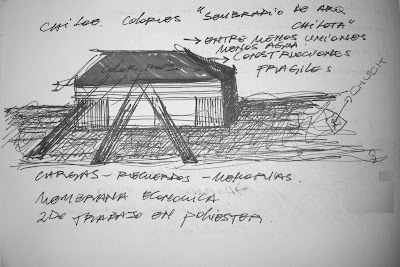 CHILOE. COLORES "SEMBRADIO DE ARQ
CHILOTA"
→ ENTRE MENOS UNIONES
MENOS AGUA.
→ CONSTRUCCIONES
FRAGILES
COLOR ROJO
CARGAS - RECUERDOS - MEMORIAS.
MEMBRANA ECONOMICA
2DO TRABAJO EN POLIESTER.